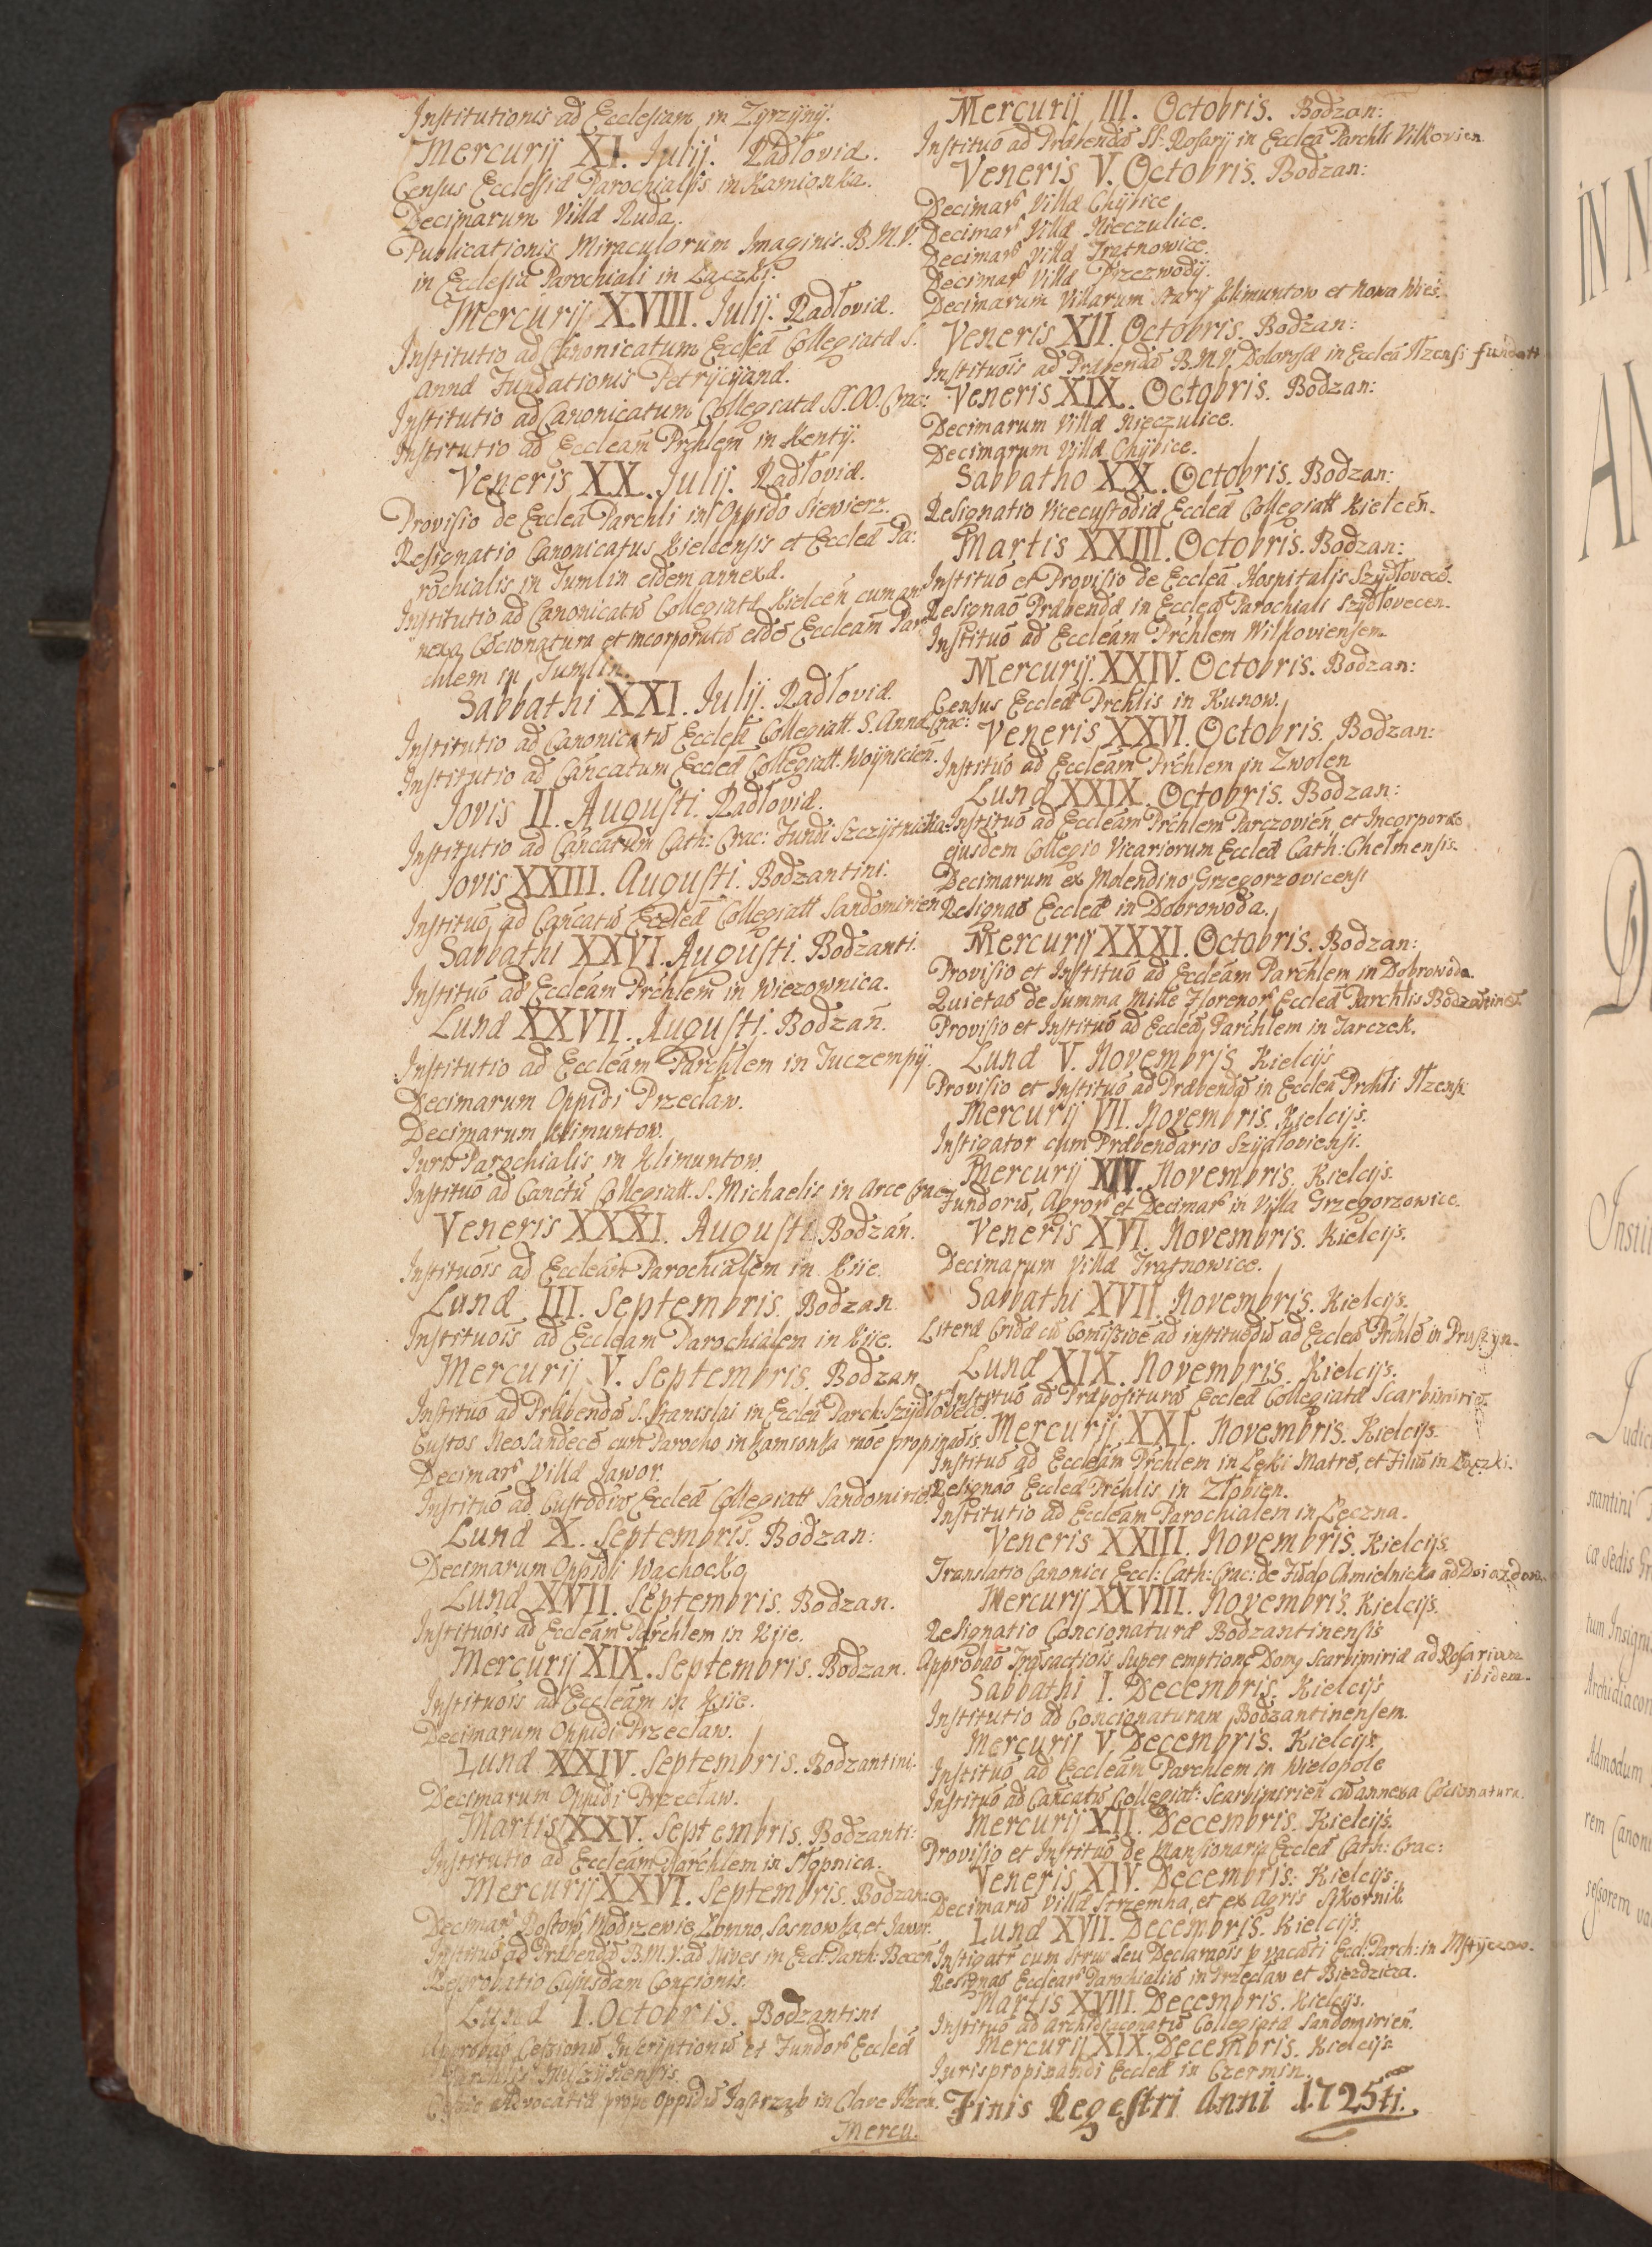 Institutionis ad Ecclesiam in Zyrzyny.
Mercurij XI. Julij. Radłoviæ.
Census Ecclesiæ Parochialis in Kamionka.
Decimarum Villæ Ruda.
Publicationis Miraculorum Imaginis B.M.V.
in Ecclesia Parochiali in Łączki.
Mercurij XVIII. Julij. Radłoviæ.
Institutio ad Canonicatum Eccleæ Collegiatæ S.
Annæ Fundationis Petrycyanæ.
Institutio ad Canonicatum Collegiatæ SS.OO. Crac:
Institutio ad Eccleam Prchlem in Kenty.
Veneris XX. Julij. Radłoviæ.
Provisio de Ecclea Parchli in Oppido Siewierz.
Resignatio Canonicatus Kielcensis et Eccleæ Pa:
rochialis in Tumlin eidem annexæ.
Institutio ad Canonicatū Collegiatæ Kielcen̄ cum an
nexa Cōcionatura et incorporatū eidē Eccleam Par
chlem in Tumlin.
Sabbathi XXI. Julij. Radłoviæ.
Institutio ad Canonicatū Eccleæ Collegiatt. S. Annæ Crac:
Institutio ad Cancatum Eccleæ Collegiatt. Woynicien̄.
Jovis II. Augusti. Radłoviæ.
Institutio ad Cancatum Cath: Crac: Fundi Szczytnicka
Jovis XXIII. Augusti. Bodzantini.
Instituō ad Cancatū Eccleæ Collegiatt Sandomirien
Sabbathi XXVI. Augusti. Bodzanti.
Instituō ad Eccleam Prchlem in Wiezownica.
Lunæ XXVII. Augusti. Bodzan̄.
Institutio ad Eccleam Parchlem in Tuczempy.
Decimarum Oppidi Przecław.
Decimarum Klimuntow.
Juris Parochialis in Klimuntow.
Instituō ad Canctū Collegiatt. S. Michaelis in Arce Crac
Veneris XXXI. Augusti Bodzan.
Instituois ad Eccleam Parochialem in Kije.
Lunæ III. Septembris. Bodzan
Instituois ad Eccleam Parochialem in Kije.
Mercurij V. Septembris. Bodzan
Instituō ad Præbendā S. Stanislai in Eccleæ Parch. Szydlovece.
Custos Neosandecē cum Parocho in Kamionka rnōe propinaōis.
Decimarꝭ Villæ Jawor.
Instituō ad Custodiā Eccleæ Collegiatt Sandomirie
Lunæ X. Septembris. Bodzan:
Decimarum Oppidi Wąchocko
Lunæ XVII. Septembris. Bodzan.
Instituois ad Eccleam Parchlem in Kije.
Mercurij XIX. Septembris. Bodzan.
Instituois ad Eccleam in Kije.
Decimarum Oppidi Przecław.
Lunæ XXIV. Septembris. Bodzantini.
Decimarum Oppidi Przecław.
Martis XXV. Septembris. Bodzanti:
Institutio ad Eccleam Parchlem in Stopnica.
Mercurij XXVI. Septembris. Bodzan:
Decimarꝭ Modrzewie, Łomno, Sosnowka, et Jawor.
Instituō ad Præbendā B.M.V. ad Nives in Eccl: Parch:
Reprobatio Cujusdam Concionis.
Lunæ I. Octobris. Bodzantini
Approbaō Cessionū Inscriptionū et Fundorꝭ Eccleæ
Advocatiæ prope Oppidū Jastrząb in Clave Ilzen.
Mercu.
Mercurij III. Octobris. Bodzan:
Instituō ad Præbendā SS. Rosarij in Ecclea Parchli Vilkovien
Veneris V. Octobris. Bodzan:
Decimarꝭ Villæ Chybice
Decimarꝭ Villæ Nieczulice.
Decimarꝭ Villæ Tratnowice.
Decimarꝭ Villæ Przezwody.
Decimarum Villarum Stary Klimuntow et Nowa Wieś.
Veneris XII. Octobris. Bodzan:
Instituois ad Præbendā B.M.V. Dolorosæ in Ecclea Ilzensi fundatt
Veneris XIX. Octobris. Bodzan:
Decimarum Villæ Nieczulice.
Decimarum Villæ Chybice.
Sabbatho XX. Octobris. Bodzan:
Resignatio Vicecustodiæ Eccleæ Collegiatt Kielcen̄.
Martis XXIII. Octobris. Bodzan:
Instituō et Provisio de Ecclea Hospitalis Szydlovece.
Resignaō Præbendæ in Ecclea Parochiali Szydlovecen.
Instituō ad Eccleam Prchlem Wilkoviensem.
Mercurij. XXIV. Octobris. Bodzan:
Census Eccleæ Prchlis in Kunow.
Veneris XXVI. Octobris. Bodzan:
Instituō ad Eccleam Prchlem in Zwolen
Lunæ XXIX. Octobris. Bodzan:
Instituō ad Eccleam Prchlem Parczovien et Incorporaō
ejusdem Collegio Vicariorum Eccleæ Cath: Chelmensis.
Decimarum ex Molendino Grzegorzovicensi
Resignaō Eccleæ in Dobrowoda.
Mercurij XXXI. Octobris. Bodzan:
Provisio et Instituō ad Eccleam Parchlem in Dobrowoda.
Quietaō de Summa Mille Florenorꝭ Eccleæ Parchlis Bodzantinē.
Provisio et Instituō ad Eccleā Parchlem in Tarczek.
Lunæ V. Novembris Kielcijs
Provisio et Instituō ad Præbendā in Ecclea Prchli Ilzens:
Mercurij VII. Novembris. Kielcijs.
Instigator cum Præbendario Szydłoviensi.
Mercurij XIV. Novembris. Kielcijs.
Fundorū, Agrorꝭ et Decimarꝭ in Villa Grzegorzowice.
Veneris XVI. Novembris. Kielcijs.
Decimarum Villæ Tratnowice.
Sabbathi XVII. Novembris. Kielcijs.
Literæ Cridæ cū Comissivē ad instituēdū ad Eccleā Prchlē in Pruszyn.
Lunæ XIX. Novembris. Kielcijs.
Instituō ad Præpositurā Eccleæ Collegiatæ Scarbimiriē.
Mercurij XXI. Novembris. Kielcijs.
Instituō ad Eccleam Prchlem in Łęki Matrē, et Filiā in Łączki.
Resignaō Eccleæ Prchlis in Złobien.
Institutio ad Eccleam Parochialem in Łęczna.
Veneris XXIII. Novembris. Kielcijs.
Translatio Canonici Eccl: Cath: Crac: de Fūdo Chmielnicka ad
Mercurij XXVIII. Novembris. Kielcijs.
Resignatio Concionaturæ Bodzantinensis
Approbaō Trāsactiois super emptionē Domꝰ Scarbimiriæ ad Rosarium
ibidem.
Sabbathi I. Decembris. Kielcijs
Institutio ad Concionaturam Bodzantinensem.
Mercurij V. Decembris. Kielcijs.
Instituō ad Eccleam Parchlem in Wielopole
Instituō ad Cancatū Collegiat: Scarbimirien̄ cū annexa Cōcionatura.
Mercurij XII. Decembris. Kielcijs.
Provisio et Instituō de Mansionaria Eccleæ Cath: Crac:
Veneris XIV. Decembris. Kielcijs.
Decimarū Villæ Strzemha, et ex Agris Sikornik
Lunæ XVII. Decembris. Kielcijs.
Instigatr cum Strue seu Declaraōis p vacāti Eccl: Parch: in Mstyczow.
Resignaō Ecclearꝭ Parochialiū in Przecław et Bierdzicza.
Martis XVIII. Decembris. Kielcijs.
Instituō ad Archidiaconatū Collegiatæ Sandomirien̄.
Mercurij XIX. Decembris. Kielcijs
Juris propinandi Eccleæ in Czermin.
Finis Regestri Anni 1725ti.